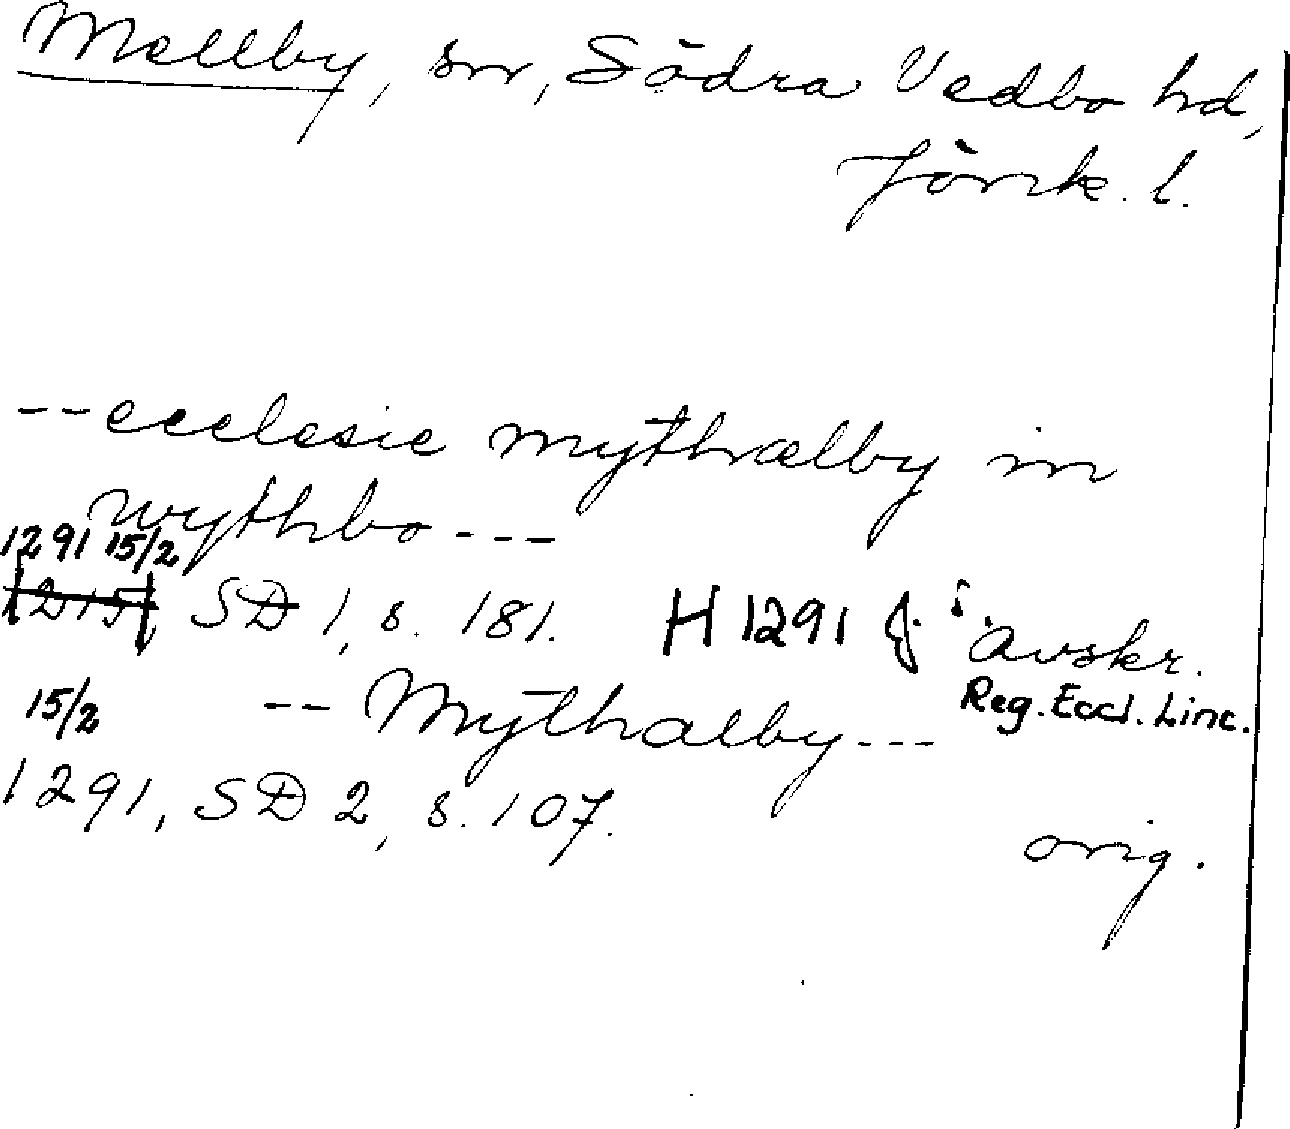 Mellby, sn, Södra Vedbo hd,
Jönk. l.
-- ecclesie mythælby in
wythbo ---
1291 15/2
1215, SD 1, s. 181. H 1291 J. s. Avskr.
Reg. Eccl. Linc.
15/2 -- Mythalby ---
1291, SD 2, s. 107.
orig.